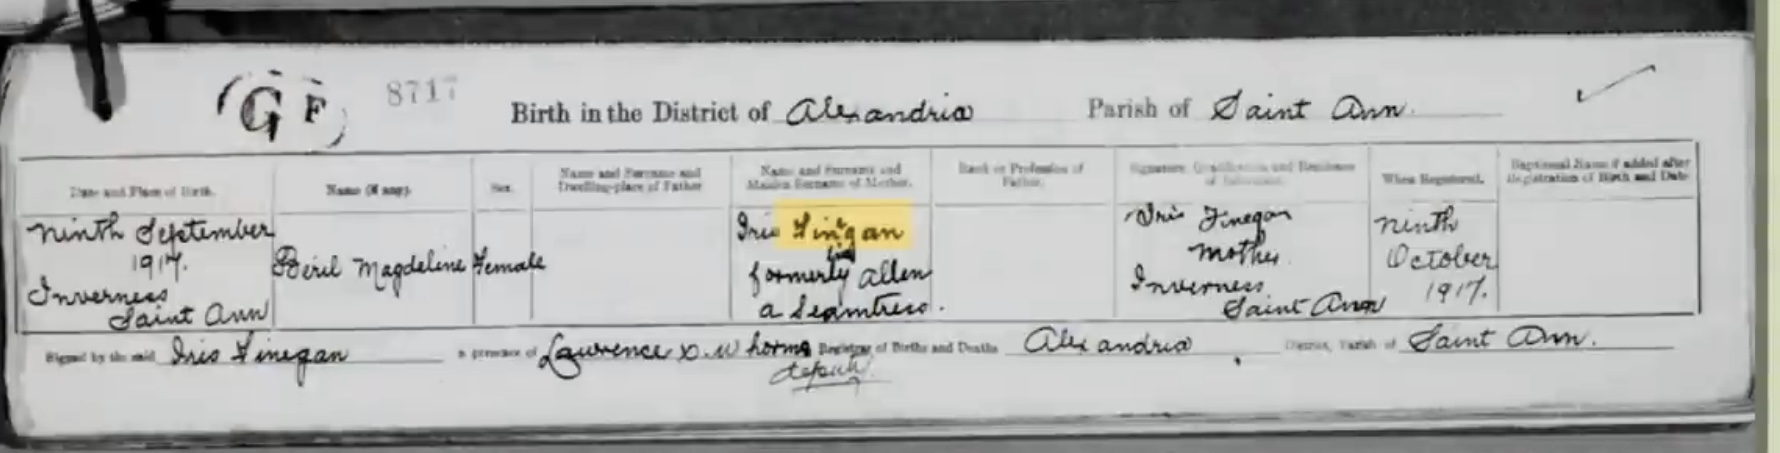 G F
8717
Birth in the District of Alexandria Parish of Saint Ann.
Date and Place of Birth.
Name (if any).
Sex.
Name and Surname and
Dwelling-place of Father
Name and Surname and
Maiden Surname of Mother.
Rank or Profession of
Father.
Signature, Qualification and Residence
of Informant.
When Registered.
Baptismal Name if added after
Registration of Birth and Date
Ninth September
1917.
Inverness
Saint Ann
Beril Magdeline
Female
Iris Finegan
formerly Allen
a Seamtress.
Iris Finegan
Mother.
Inverness
Saint Ann
Ninth
October
1917.
Signed by the said Iris Finegan in presence of Lawrence Registrar of Births and Deaths Alexandria District, Parish of Saint Ann.
deputy